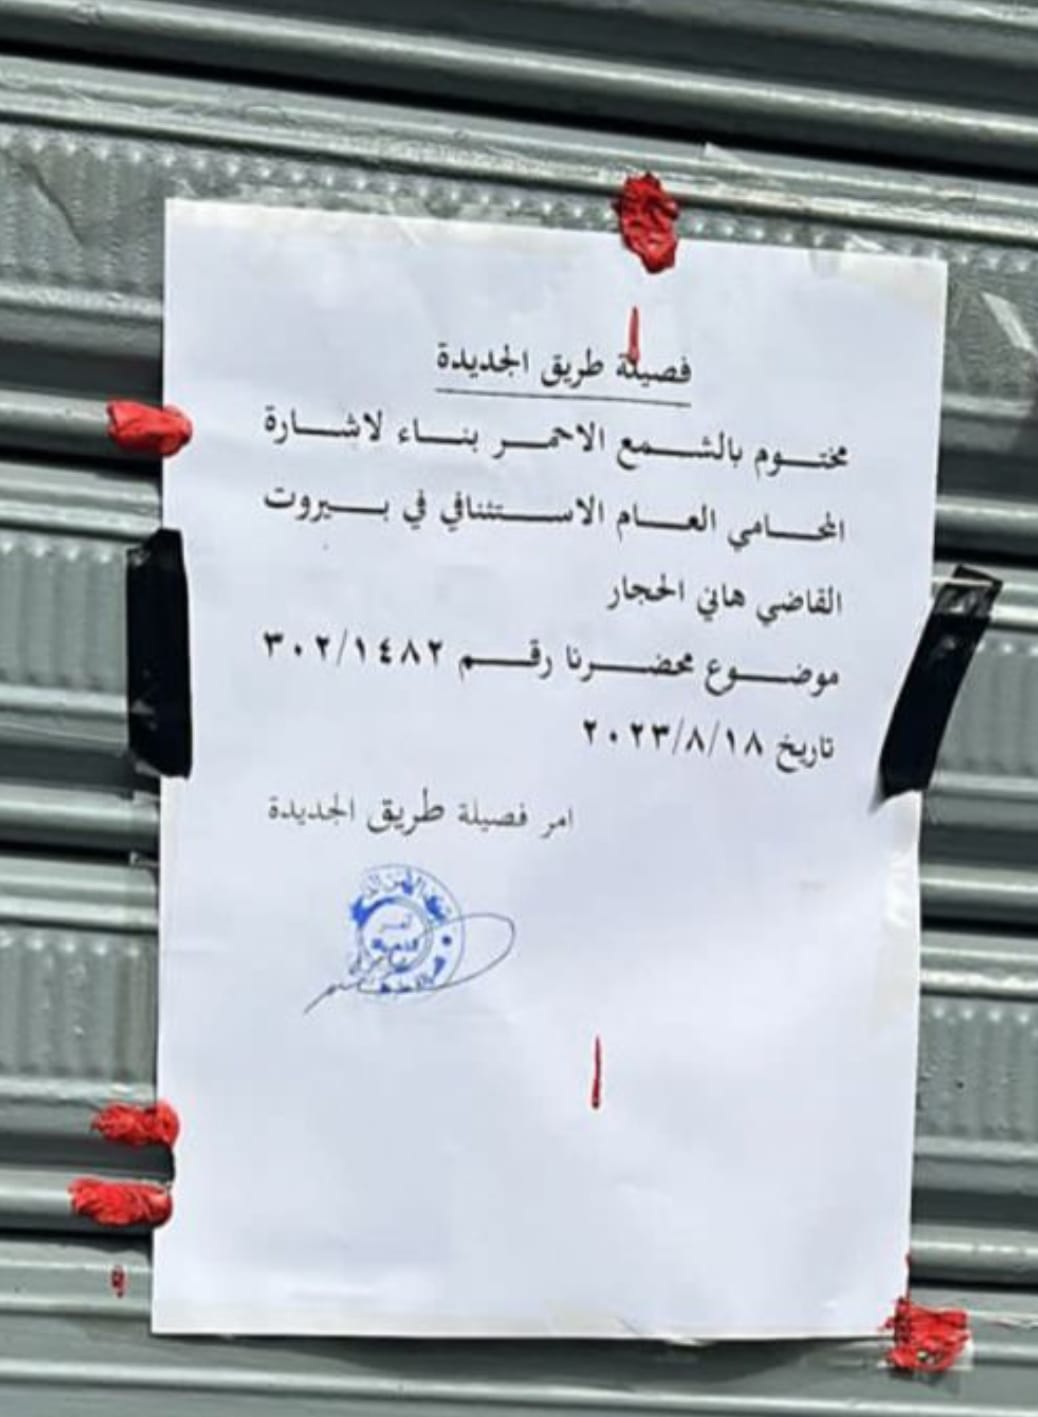 فصيلة طريق الجديدة
مختوم بالشمع الاحمر بناء لاشارة
المحامي العام الاستئنافي في بيروت
القاضي هاني الحجار
موضوع محضرنا رقم ٣٠٢/١٤٨٢
تاريخ ٢٠٢٣/٨/١٨
امر فصيلة طريق الجديدة